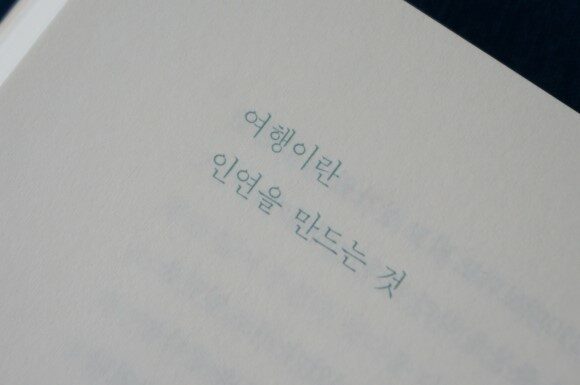 여행이란
인연을 만드는 것